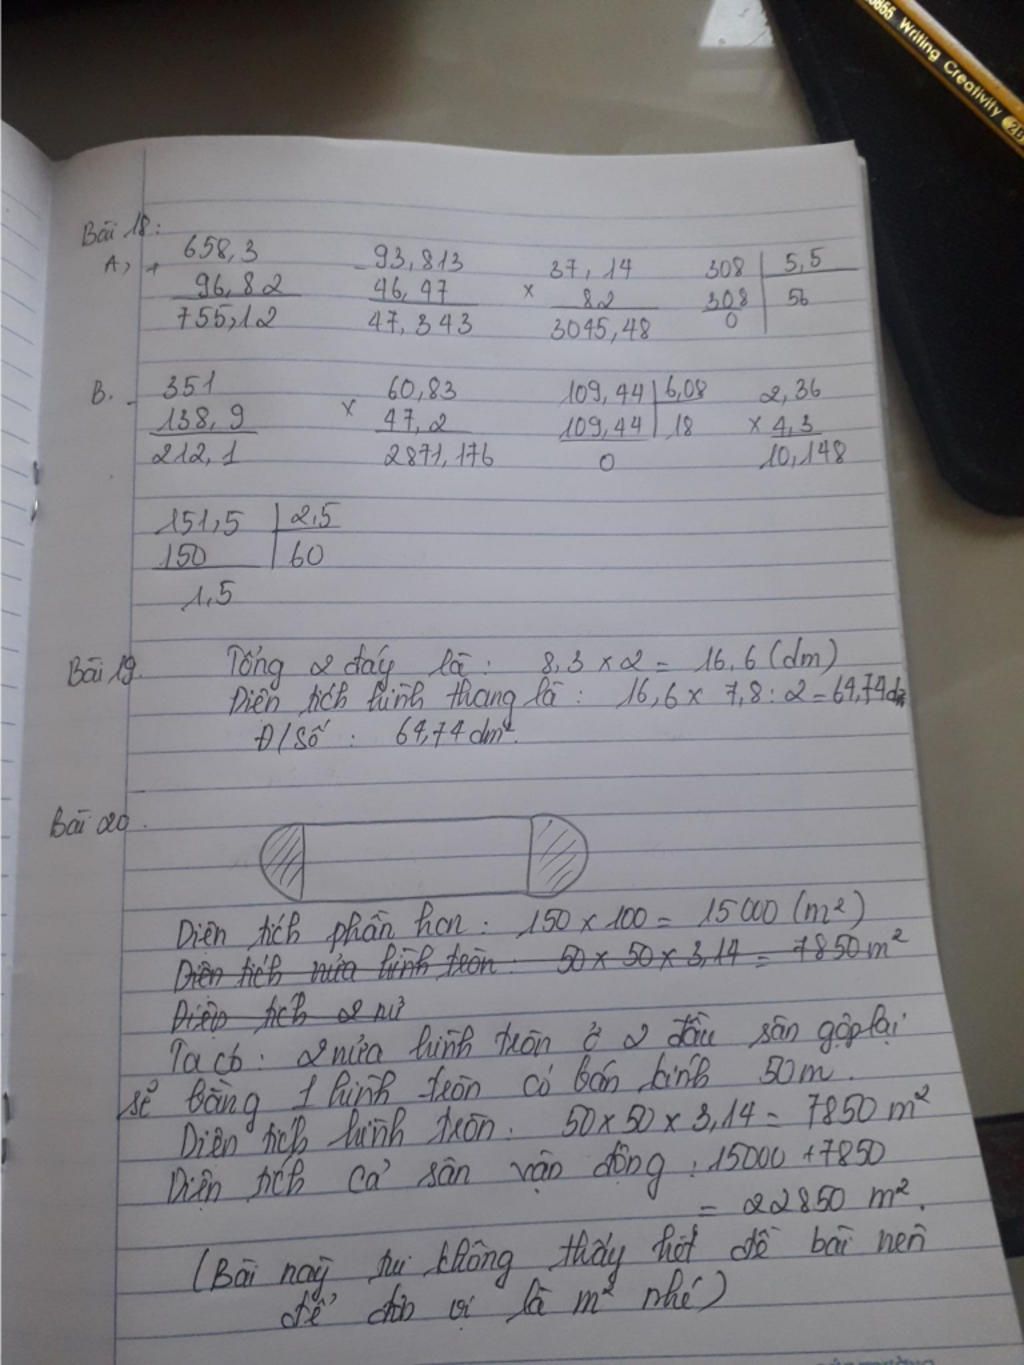 3855 Writing Creativity 2B
Bài 18:
A, + 658,3 - 93,813 x 37,14 308 | 5,5
96,82 46,47 82 308 | 56
755,12 47,343 3045,48 0
B. - 351 x 60,83 109,44 | 6,08 2,36
138,9 47,2 109,44 | 18 x 4,3
212,1 2871,176 0 10,148
151,5 | 2,5
150 | 60
1,5
Bài 19. Tổng 2 đáy là: 8,3 x 2 = 16,6 (dm)
Diện tích hình thang là: 16,6 x 7,8 : 2 = 64,74 dm
Đ/Số: 64,74 dm².
Bài 20.
Diện tích phần hcn: 150 x 100 = 15000 (m²)
Diện tích nửa hình tròn: 50 x 50 x 3,14 = 7850 m²
Diện tích 2 nử
Ta có: 2 nửa hình tròn ở 2 đầu sân gộp lại
sẽ bằng 1 hình tròn có bán kính 50m.
Diện tích hình tròn: 50 x 50 x 3,14 = 7850 m²
Diện tích cả sân vận động: 15000 + 7850
= 22850 m².
(Bài này không thấy hết đề bài nên
để đơn vị là m² nhé)